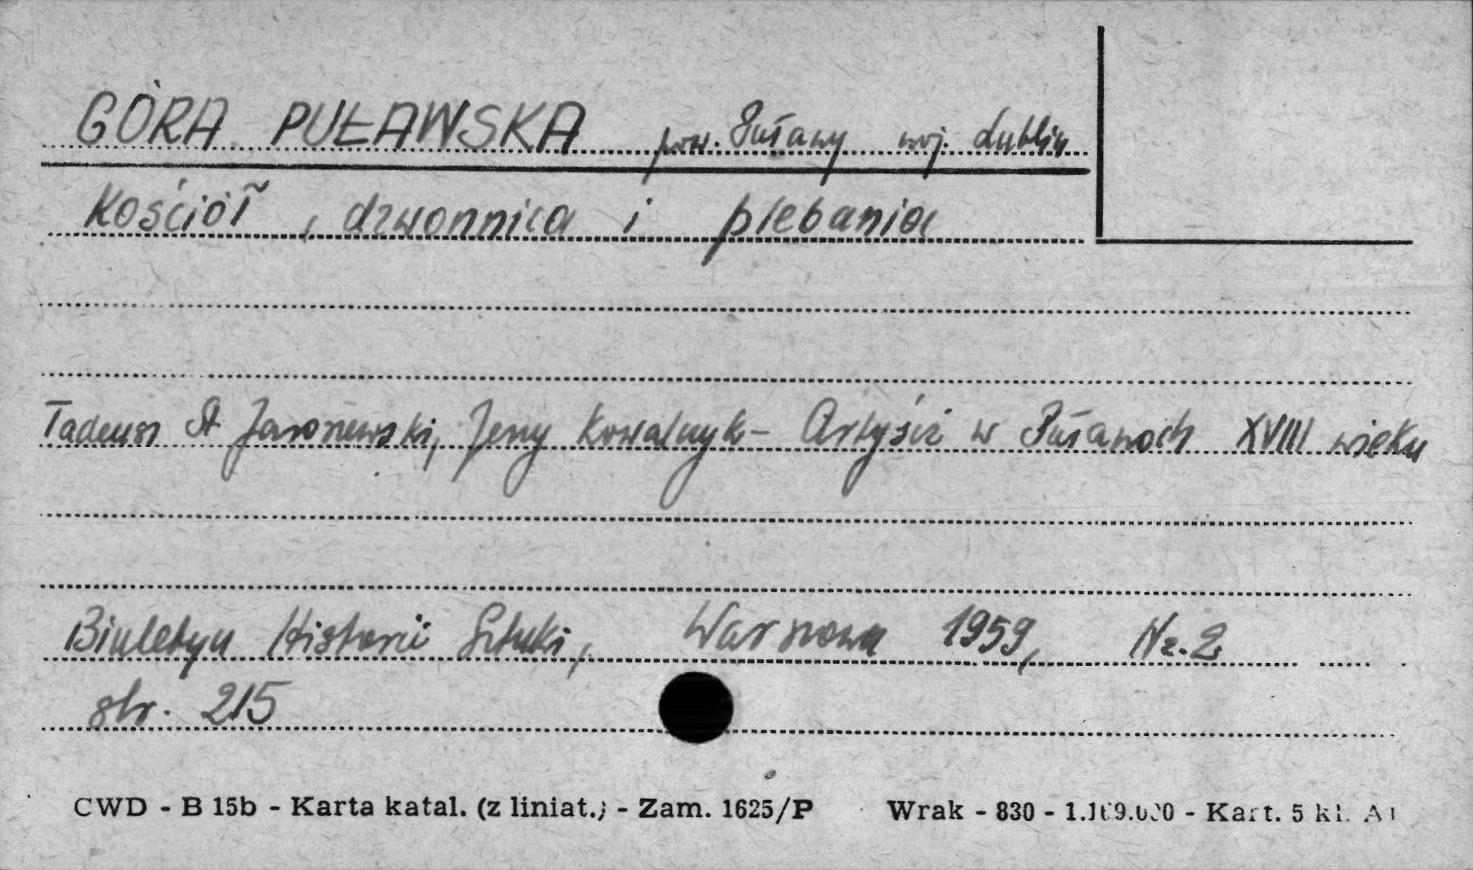 GÓRA PUŁAWSKA pow. Puławy woj. Lublin
Kościół, dzwonnica i plebania
Tadeusz St Jaroszewski, Jerzy Kowalczyk - Artyści w Puławach XVIII wieku
Biuletyn Historii Sztuki, Warszawa 1959, Nr. 2
str. 215
CWD - B 15b - Karta katal. (z liniat.) - Zam. 1625/P Wrak - 830 - Kart. 5 kl.